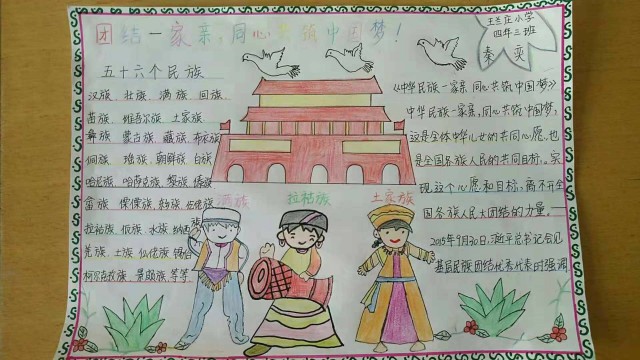 团结一家亲,同心共筑中国梦!
王兰庄小学
四年三班
秦奕
五十六个民族
汉族、壮族、满族、回族、
苗族、维吾尔族、土家族、
彝族、蒙古族、藏族、布依族
侗族、瑶族、朝鲜族、白族
哈尼族、哈萨克族、黎族、傣族
畲族、傈僳族、
拉祜族、佤族、水族、纳西族
羌族、土族、仫佬族、锡伯
柯尔克孜族、景颇族、等等
满族
拉祜族
土家族
《中华民族一家亲,同心共筑中国梦》
中华民族一家亲,同心共筑中国梦,
这是全体中华儿女的共同心愿,也
是全国各族人民的共同目标。实
现这个心愿和目标,离不开全
国各族人民大团结的力量。——
2015年9月30日,习近平总书记会见
基层民族团结优秀代表时强调